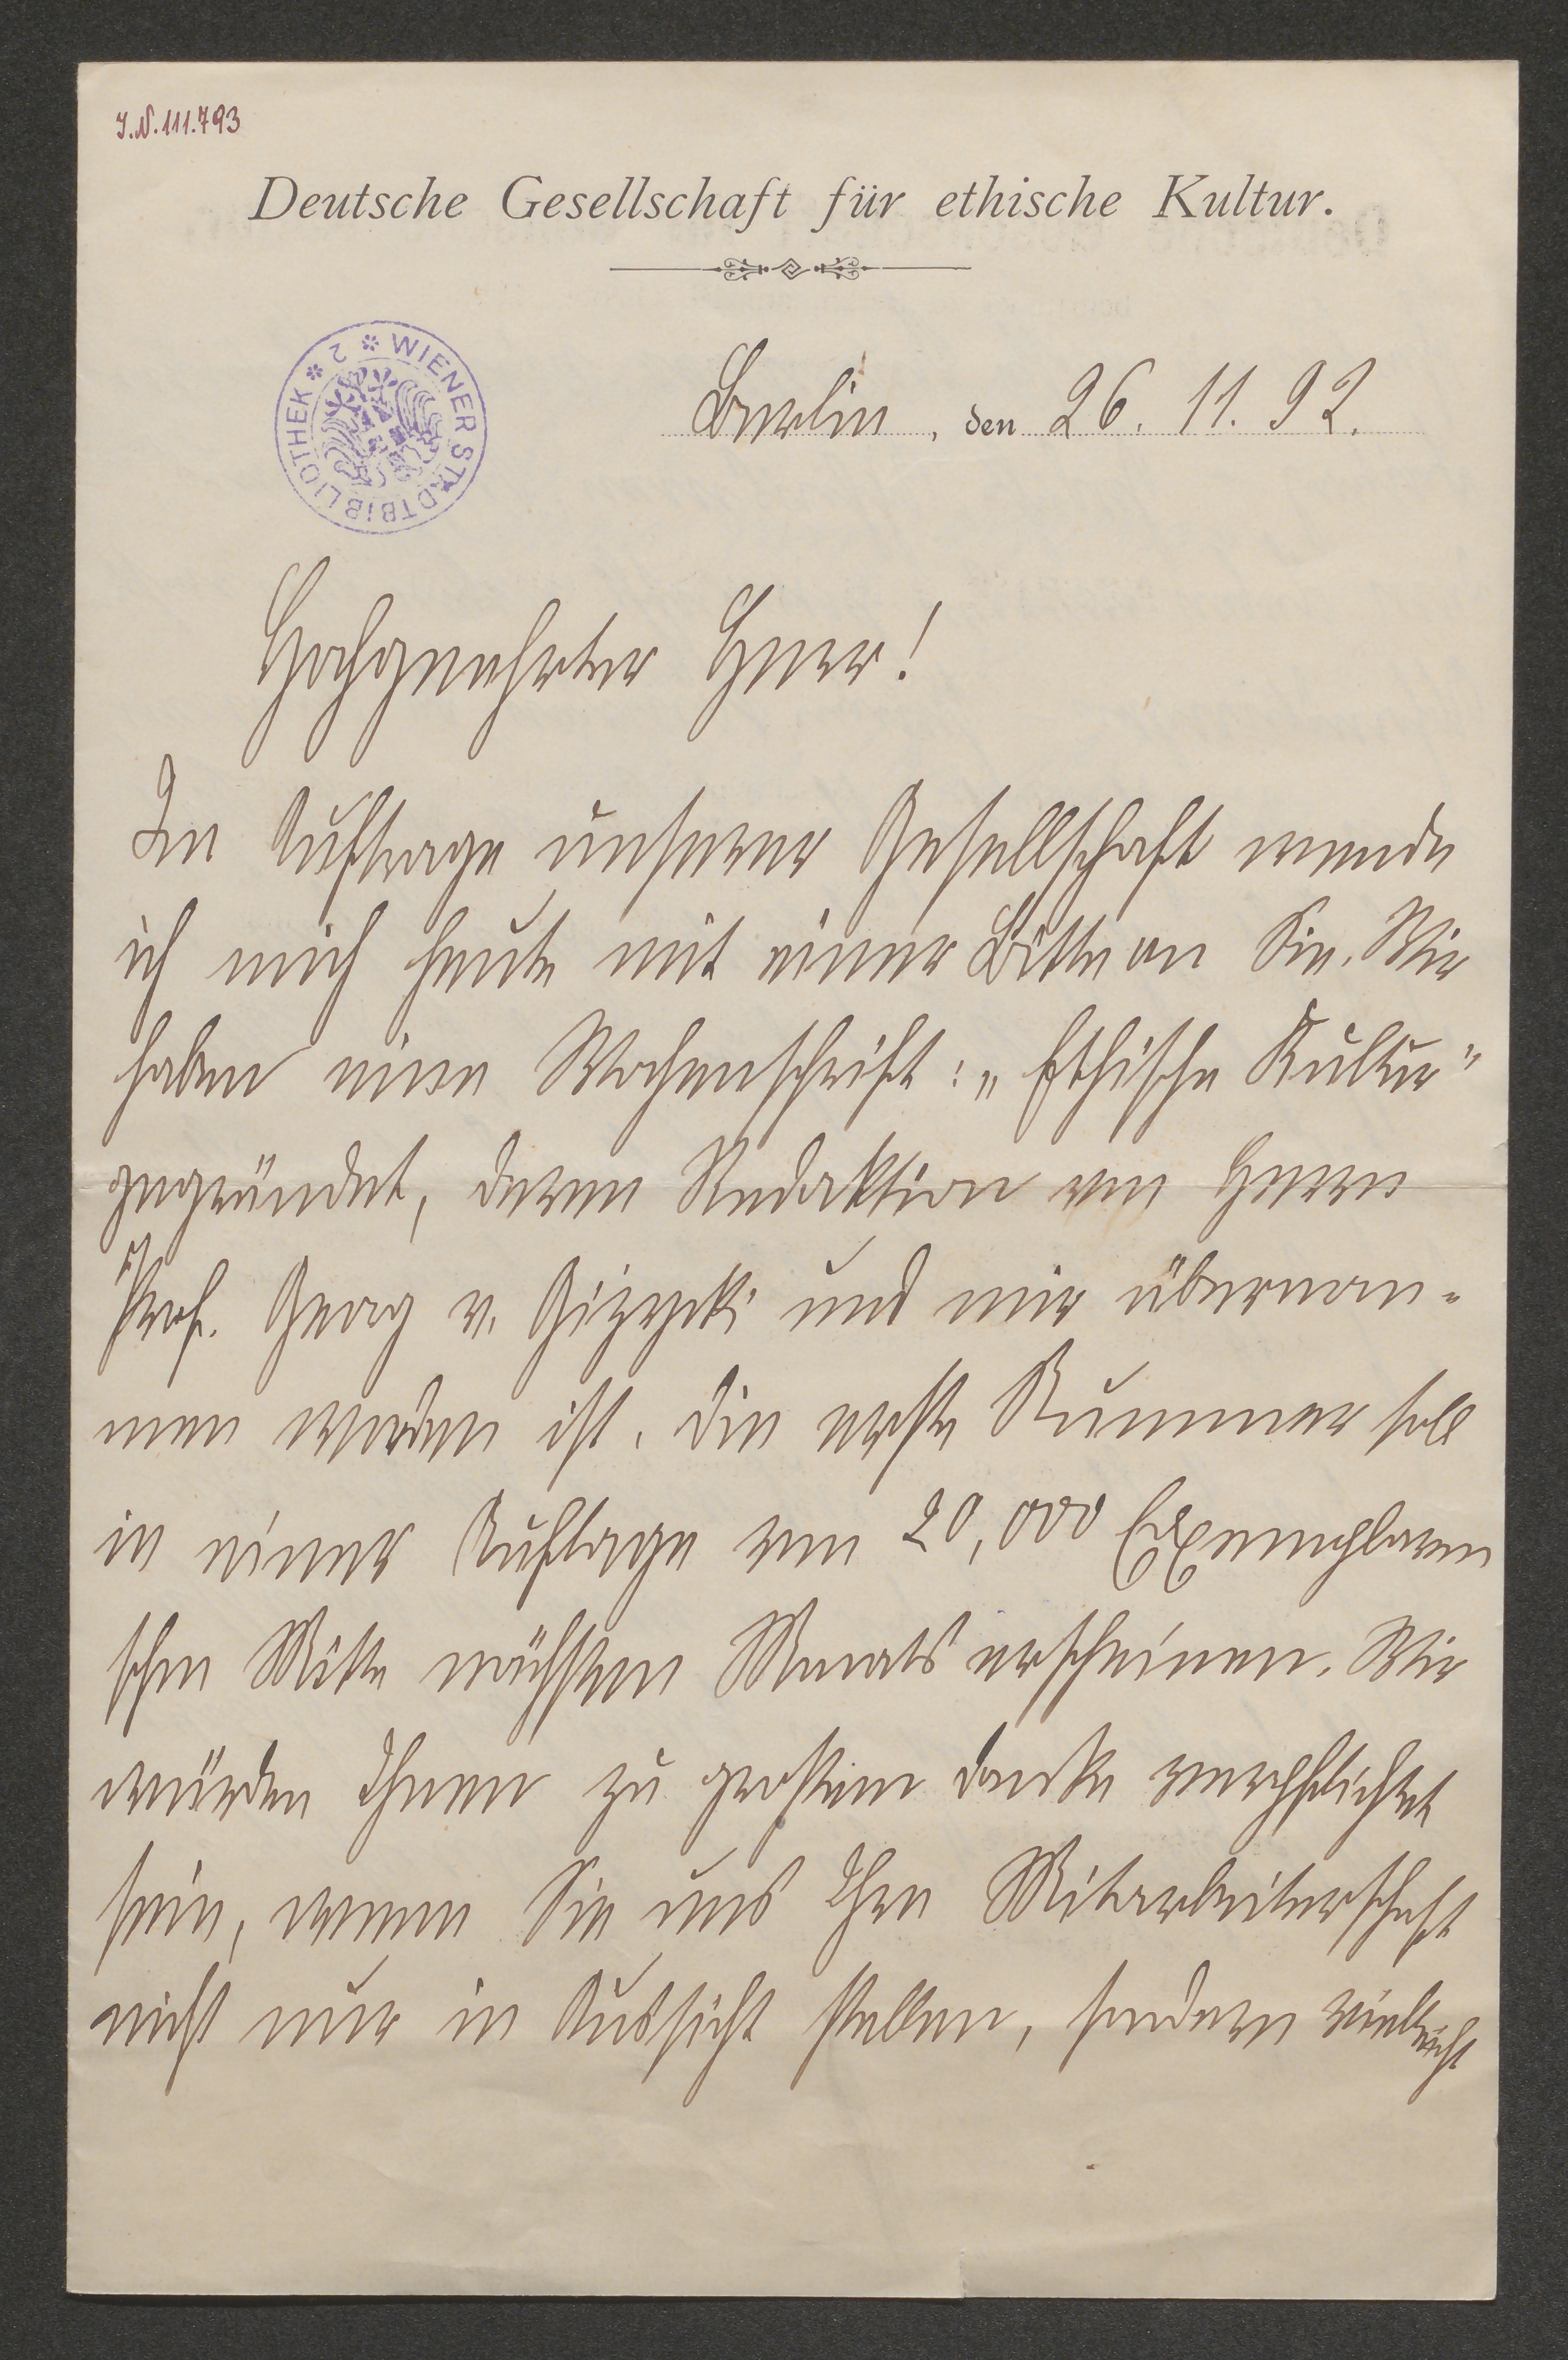 J.N. 111.793
Deutsche Gesellschaft für ethische Kultur.
WIENER STADTBIBLIOTHEK 2
Berlin, den 26. 11. 92.
Hochgeehrter Herr!
Im Auftrage unserer Gesellschaft wende
ich mich heute mit einer Bitte an Sie. Wir
haben eine Wochenschrift: „Ethische Kultur"
gegründet, deren Redaktion von Herrn
Prof. Georg v. Gizycki und mir übernom-
men worden ist. Die erste Nummer soll
in einer Auflage von 20,000 Exemplaren
schon Mitte nächsten Monats erscheinen. Wir
würden Ihnen zu großem Danke verpflichtet
sein, wenn Sie uns Ihre Mitarbeiterschaft
nicht nur in Aussicht stellen, sondern vielleicht